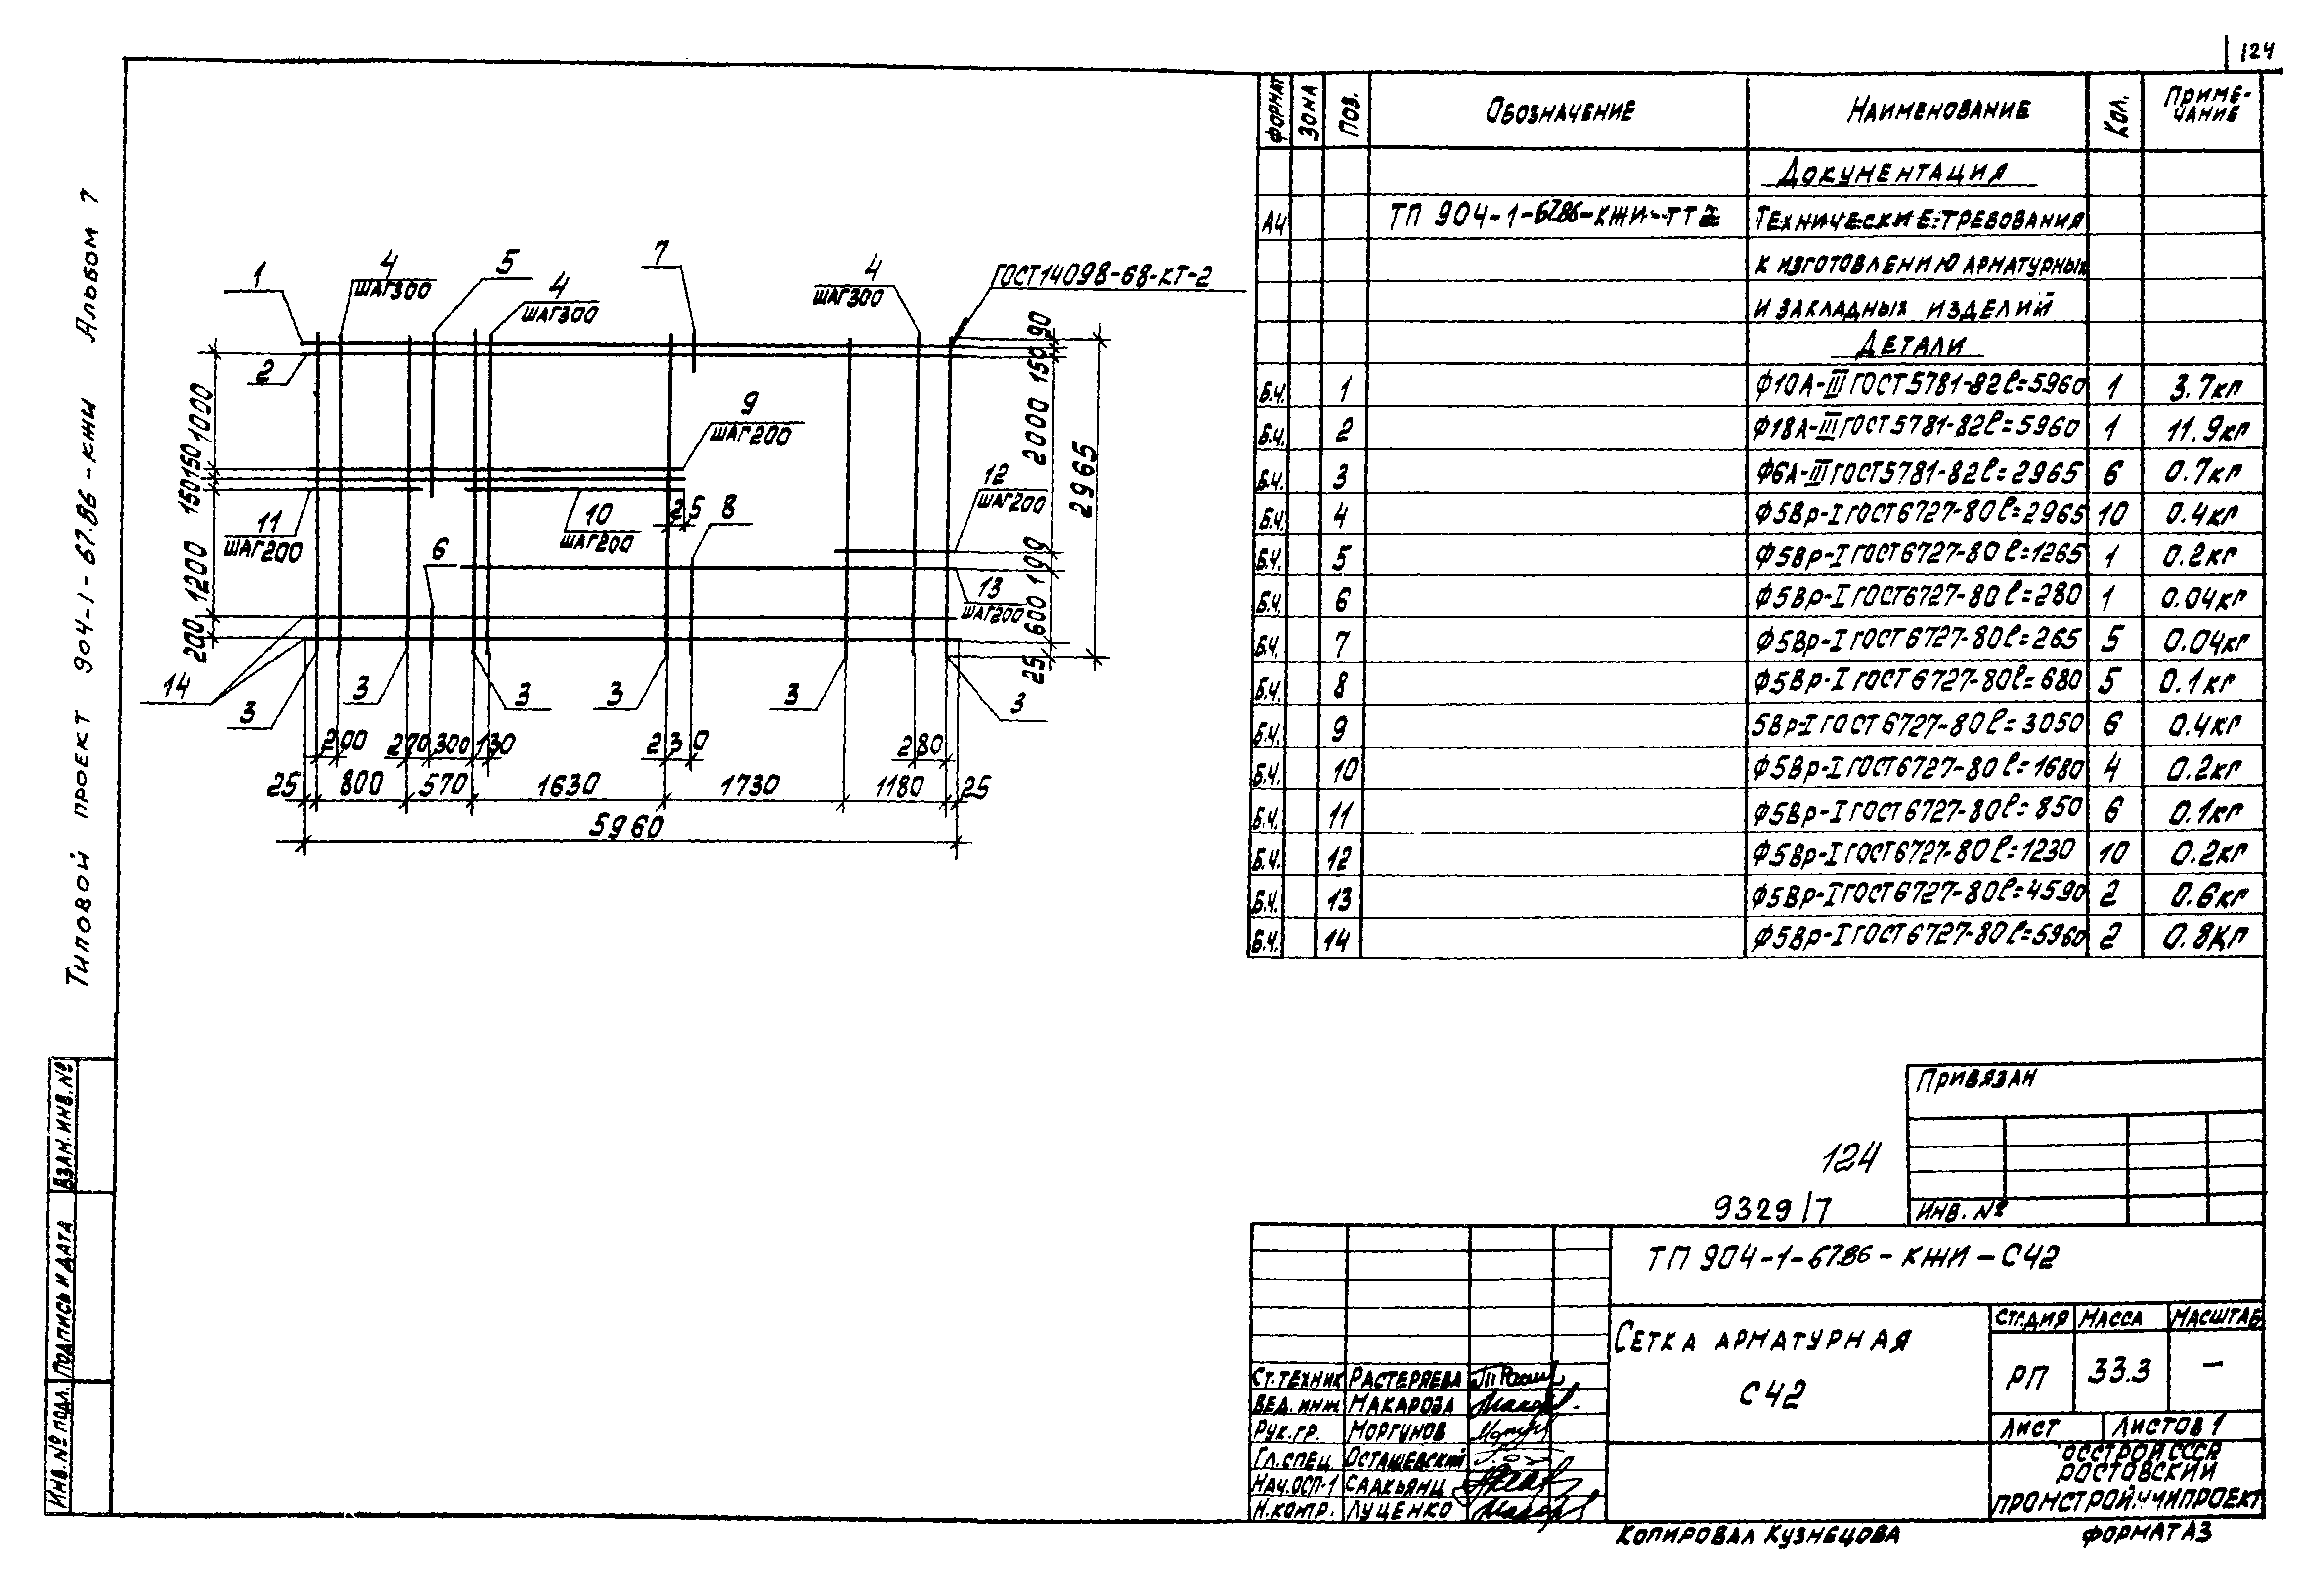 124
Типовой проект 904-1-67.86-КЖИ Альбом 7
1
4
ШАГ300
5
4
ШАГ300
7
4
ШАГ300
ГОСТ14098-68-КТ-2
2
9
ШАГ200
12
ШАГ200
11
ШАГ200
10
ШАГ200
25
8
6
13
ШАГ200
14
3
3
3
3
3
3
1000
150
150
1200
200
90
150
2000
100
600
25
2965
200
270
300
130
230
280
25
800
570
1630
1730
1180
25
5960
ФОРМАТ ЗОНА ПОЗ. ОБОЗНАЧЕНИЕ НАИМЕНОВАНИЕ КОЛ. ПРИМЕ-ЧАНИЕ
ДОКУМЕНТАЦИЯ
А4 ТП 904-1-6786-КЖИ-ТТ2 ТЕХНИЧЕСКИЕ ТРЕБОВАНИЯ
К ИЗГОТОВЛЕНИЮ АРМАТУРНЫХ
И ЗАКЛАДНЫХ ИЗДЕЛИЙ
ДЕТАЛИ
Б.Ч. 1 Ф10А-III ГОСТ5781-82 ℓ=5960 1 3.7кг
Б.Ч. 2 Ф18А-III ГОСТ5781-82 ℓ=5960 1 11.9кг
Б.Ч. 3 Ф6А-III ГОСТ5781-82 ℓ=2965 6 0.7кг
Б.Ч. 4 Ф5Вр-I ГОСТ6727-80 ℓ=2965 10 0.4кг
Б.Ч. 5 Ф5Вр-I ГОСТ6727-80 ℓ=1265 1 0.2кг
Б.Ч. 6 Ф5Вр-I ГОСТ6727-80 ℓ=280 1 0.04кг
Б.Ч. 7 Ф5Вр-I ГОСТ6727-80 ℓ=265 5 0.04кг
Б.Ч. 8 Ф5Вр-I ГОСТ6727-80 ℓ=680 5 0.1кг
Б.Ч. 9 5Вр-I ГОСТ6727-80 ℓ=3050 6 0.4кг
Б.Ч. 10 Ф5Вр-I ГОСТ6727-80 ℓ=1680 4 0.2кг
Б.Ч. 11 Ф5Вр-I ГОСТ6727-80 ℓ=850 6 0.1кг
Б.Ч. 12 Ф5Вр-I ГОСТ6727-80 ℓ=1230 10 0.2кг
Б.Ч. 13 Ф5Вр-I ГОСТ6727-80 ℓ=4590 2 0.6кг
Б.Ч. 14 Ф5Вр-I ГОСТ6727-80 ℓ=5960 2 0.8кг
ПРИВЯЗАН
ИНВ. №
124
9329/7
ТП 904-1-6786-КЖИ-С42
СЕТКА АРМАТУРНАЯ
С42
СТАДИЯ МАССА МАСШТАБ
РП 33.3 –
ЛИСТ ЛИСТОВ 1
ОССТРОЙ СССР
РОСТОВСКИЙ
СТ.ТЕХНИК РАСТЕРЯЕВА
ВЕД. ИНЖ. МАКАРОВА
РУК.ГР. МОРГУНОВ
ГЛ.СПЕЦ. ОСТАШЕВСКИЙ
НАЧ.ОСП-1 СААКЬЯНЦ
Н.КОНТР. ЛУЦЕНКО
КОПИРОВАЛ КУЗНЕЦОВА ФОРМАТ А3
ВЗАМ.ИНВ.№
ПОДПИСЬ И ДАТА
ИНВ.№ ПОДЛ.